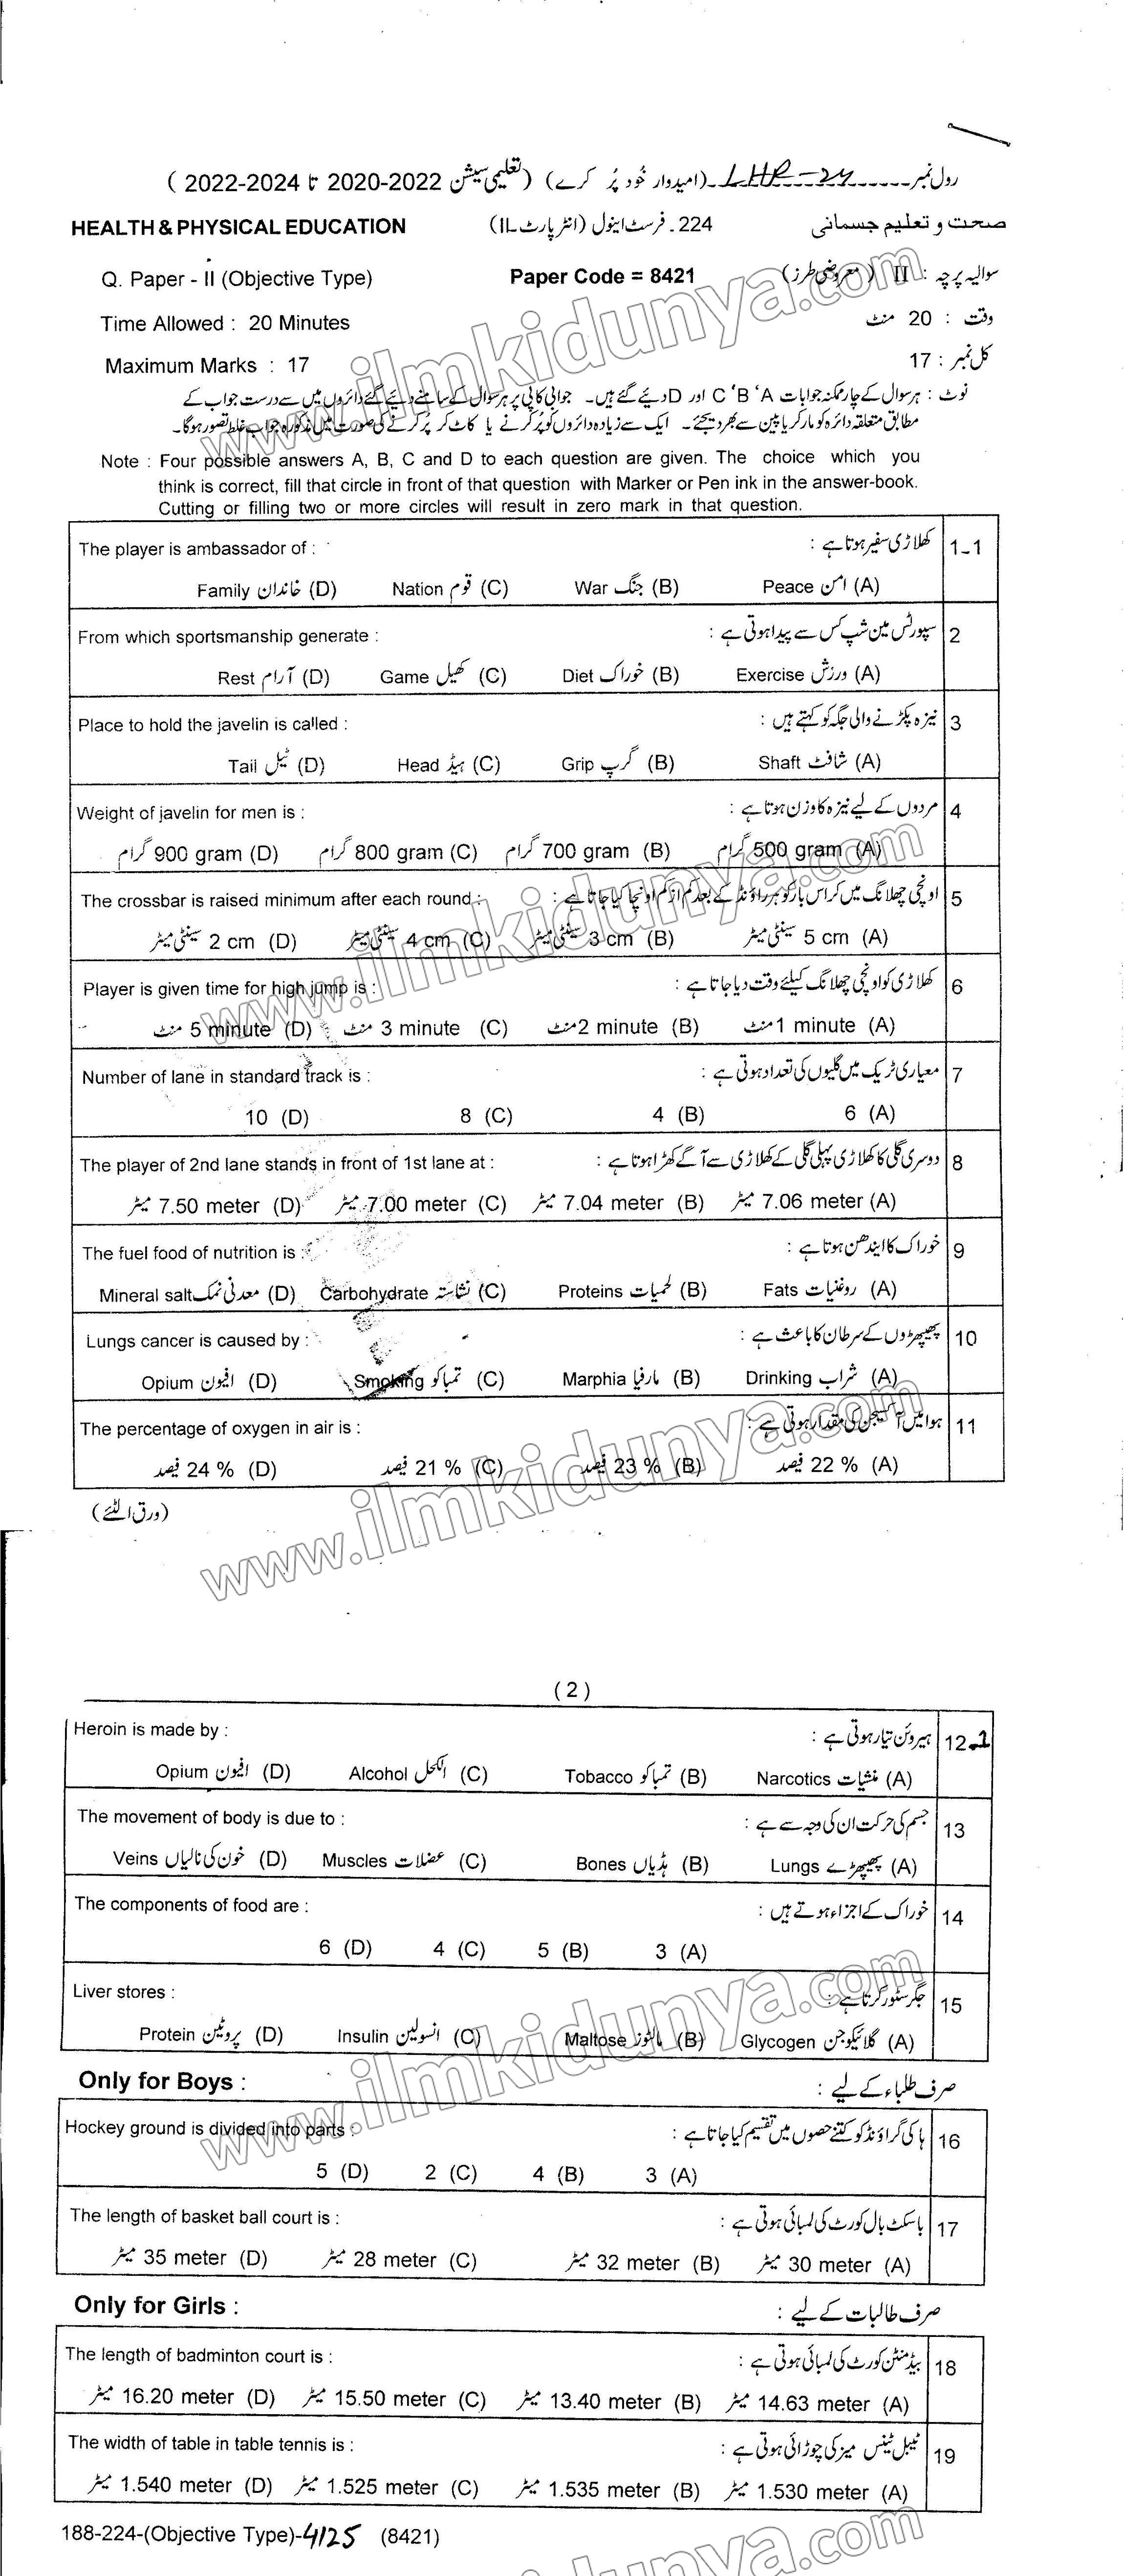 رول نمبر LHR-24 (امیدوار خود پُر کرے) (تعلیمی سیشن 2020-2022 تا 2022-2024)
HEALTH & PHYSICAL EDUCATION 224۔ فرسٹ اینول (انٹر پارٹ-II) صحت و تعلیم جسمانی
Q. Paper - II (Objective Type) Paper Code = 8421 سوالیہ پرچہ : II (معروضی طرز)
Time Allowed : 20 Minutes وقت : 20 منٹ
Maximum Marks : 17 کل نمبر : 17
نوٹ : ہر سوال کے چار ممکنہ جوابات A ‘B ‘C اور D دیئے گئے ہیں۔ جوابی کاپی پر ہر سوال کے سامنے دیئے گئے دائروں میں سے درست جواب کے
مطابق متعلقہ دائرہ کو مارکر یا پین سے بھر دیجئے۔ ایک سے زیادہ دائروں کو پُر کرنے یا کاٹ کر پُر کرنے کی صورت میں مذکورہ جواب غلط تصور ہوگا۔
Note : Four possible answers A, B, C and D to each question are given. The choice which you
think is correct, fill that circle in front of that question with Marker or Pen ink in the answer-book.
Cutting or filling two or more circles will result in zero mark in that question.
The player is ambassador of : کھلاڑی سفیر ہوتا ہے : 1-1
Family خاندان (D) Nation قوم (C) War جنگ (B) Peace امن (A)
From which sportsmanship generate : سپورٹس مین شپ کس سے پیدا ہوتی ہے : 2
Rest آرام (D) Game کھیل (C) Diet خوراک (B) Exercise ورزش (A)
Place to hold the javelin is called : نیزہ پکڑنے والی جگہ کو کہتے ہیں : 3
Tail ٹیل (D) Head ہیڈ (C) Grip گرپ (B) Shaft شافٹ (A)
Weight of javelin for men is : مردوں کے لیے نیزہ کا وزن ہوتا ہے : 4
گرام 900 gram (D) گرام 800 gram (C) گرام 700 gram (B) گرام 500 gram (A)
The crossbar is raised minimum after each round : اونچی چھلانگ میں کراس بار کو ہر راؤنڈ کے بعد کم از کم اونچا کیا جاتا ہے : 5
سینٹی میٹر 2 cm (D) سینٹی میٹر 4 cm (C) سینٹی میٹر 3 cm (B) سینٹی میٹر 5 cm (A)
Player is given time for high jump is : کھلاڑی کو اونچی چھلانگ کیلئے وقت دیا جاتا ہے : 6
منٹ 5 minute (D) منٹ 3 minute (C) منٹ 2 minute (B) منٹ 1 minute (A)
Number of lane in standard track is : معیاری ٹریک میں گلیوں کی تعداد ہوتی ہے : 7
10 (D) 8 (C) 4 (B) 6 (A)
The player of 2nd lane stands in front of 1st lane at : دوسری گلی کا کھلاڑی پہلی گلی کے کھلاڑی سے آگے کھڑا ہوتا ہے : 8
میٹر 7.50 meter (D) میٹر 7.00 meter (C) میٹر 7.04 meter (B) میٹر 7.06 meter (A)
The fuel food of nutrition is : خوراک کا ایندھن ہوتا ہے : 9
Mineral salt معدنی نمک (D) Carbohydrate نشاستہ (C) Proteins لحمیات (B) Fats روغنیات (A)
Lungs cancer is caused by : پھیپھڑوں کے سرطان کا باعث ہے : 10
Opium افیون (D) Smoking تمباکو (C) Marphia مارفیا (B) Drinking شراب (A)
The percentage of oxygen in air is : ہوا میں آکسیجن کی مقدار ہوتی ہے : 11
فیصد 24 % (D) فیصد 21 % (C) فیصد 23 % (B) فیصد 22 % (A)
(ورق الٹئے)
(2)
Heroin is made by : ہیروئن تیار ہوتی ہے : 12-1
Opium افیون (D) Alcohol الکحل (C) Tobacco تمباکو (B) Narcotics منشیات (A)
The movement of body is due to : جسم کی حرکت ان کی وجہ سے ہے : 13
Veins خون کی نالیاں (D) Muscles عضلات (C) Bones ہڈیاں (B) Lungs پھیپھڑے (A)
The components of food are : خوراک کے اجزاء ہوتے ہیں : 14
6 (D) 4 (C) 5 (B) 3 (A)
Liver stores : جگر سٹور کرتا ہے : 15
Protein پروٹین (D) Insulin انسولین (C) Maltose مالٹوز (B) Glycogen گلائیکوجن (A)
Only for Boys : صرف طلباء کے لیے :
Hockey ground is divided into parts : ہاکی گراؤنڈ کو کتنے حصوں میں تقسیم کیا جاتا ہے : 16
5 (D) 2 (C) 4 (B) 3 (A)
The length of basket ball court is : باسکٹ بال کورٹ کی لمبائی ہوتی ہے : 17
میٹر 35 meter (D) میٹر 28 meter (C) میٹر 32 meter (B) میٹر 30 meter (A)
Only for Girls : صرف طالبات کے لیے :
The length of badminton court is : بیڈمنٹن کورٹ کی لمبائی ہوتی ہے : 18
میٹر 16.20 meter (D) میٹر 15.50 meter (C) میٹر 13.40 meter (B) میٹر 14.63 meter (A)
The width of table in table tennis is : ٹیبل ٹینس میز کی چوڑائی ہوتی ہے : 19
میٹر 1.540 meter (D) میٹر 1.525 meter (C) میٹر 1.535 meter (B) میٹر 1.530 meter (A)
188-224-(Objective Type)-4125 (8421)
www.ilmkidunya.com
www.ilmkidunya.com
www.ilmkidunya.com
www.ilmkidunya.com
ilmkidunya.com